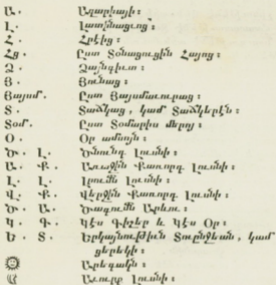 Ա. Ազարիայի :
Լ. Լատինացւոց :
Հ. Հրէից :
Հց. Ըստ Տօնացուցին Հայոց :
Ձ. Ձայնգիւտ :
Յ. Յունաց :
Յայսմ. Ըստ Յայսմաւուրաց :
Տ. Տաճկաց , կամ Տաճկերէն :
Տօմ. Ըստ Տօմարիս մերոյ :
Օ. Օր ամսոյն :
Ծ. Լ. Ծնունդ Լուսնի :
Ա. Ք. Առաջին Քառորդ Լուսնի :
Լ. Լ. Լրումն Լուսնի :
Վ. Ք. Վերջին Քառորդ Լուսնի :
Ծ. Ա. Ծագումն Արևու :
Կ. Գ. Կէս Գիշեր և Կէս Օր :
Ե. Տ. Երկայնութիւն Տուընջեան , կամ
ցերեկի :
Արեգակն :
Աւուրք Լուսնի :